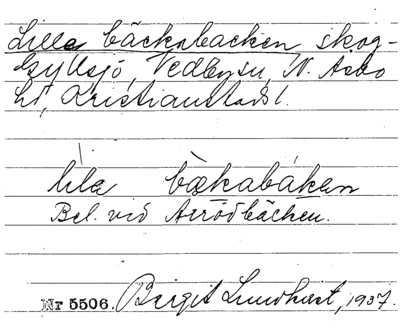 Lilla bäckabacken skog-
Gyllsjö, Vedbysn, N. Åsbo
hd, Kristianstads l.
lila bækabåkan
Bel. vid Arrödbäcken.
Nr 5506. Birgit Lundkvist, 1937.